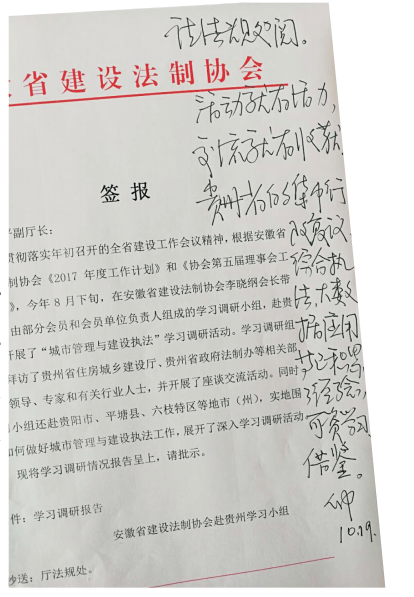 请法规处阅。
省建设法制协会
活动就有活力,
交流就有收获
贵州省的集中行
政复议、
综合执
法、大数
据应用
经验,
可资学习
借鉴。
10.19.
签报
副厅长：
贯彻落实年初召开的全省建设工作会议精神，根据安徽省
制协会《2017 年度工作计划》和《协会第五届理事会工
》，今年 8 月下旬，在安徽省建设法制协会李晓纲会长带
由部分会员和会员单位负责人组成的学习调研小组，赴贵
开展了“城市管理与建设执法”学习调研活动。学习调研组
拜访了贵州省住房城乡建设厅、贵州省政府法制办等相关部
领导、专家和有关行业人士，并开展了座谈交流活动。同时
小组还赴贵阳市、平塘县、六枝特区等地市（州），实地围
如何做好城市管理与建设执法工作，展开了深入学习调研活
现将学习调研情况报告呈上，请批示。
件：学习调研报告
安徽省建设法制协会赴贵州学习小组
抄送：厅法规处。